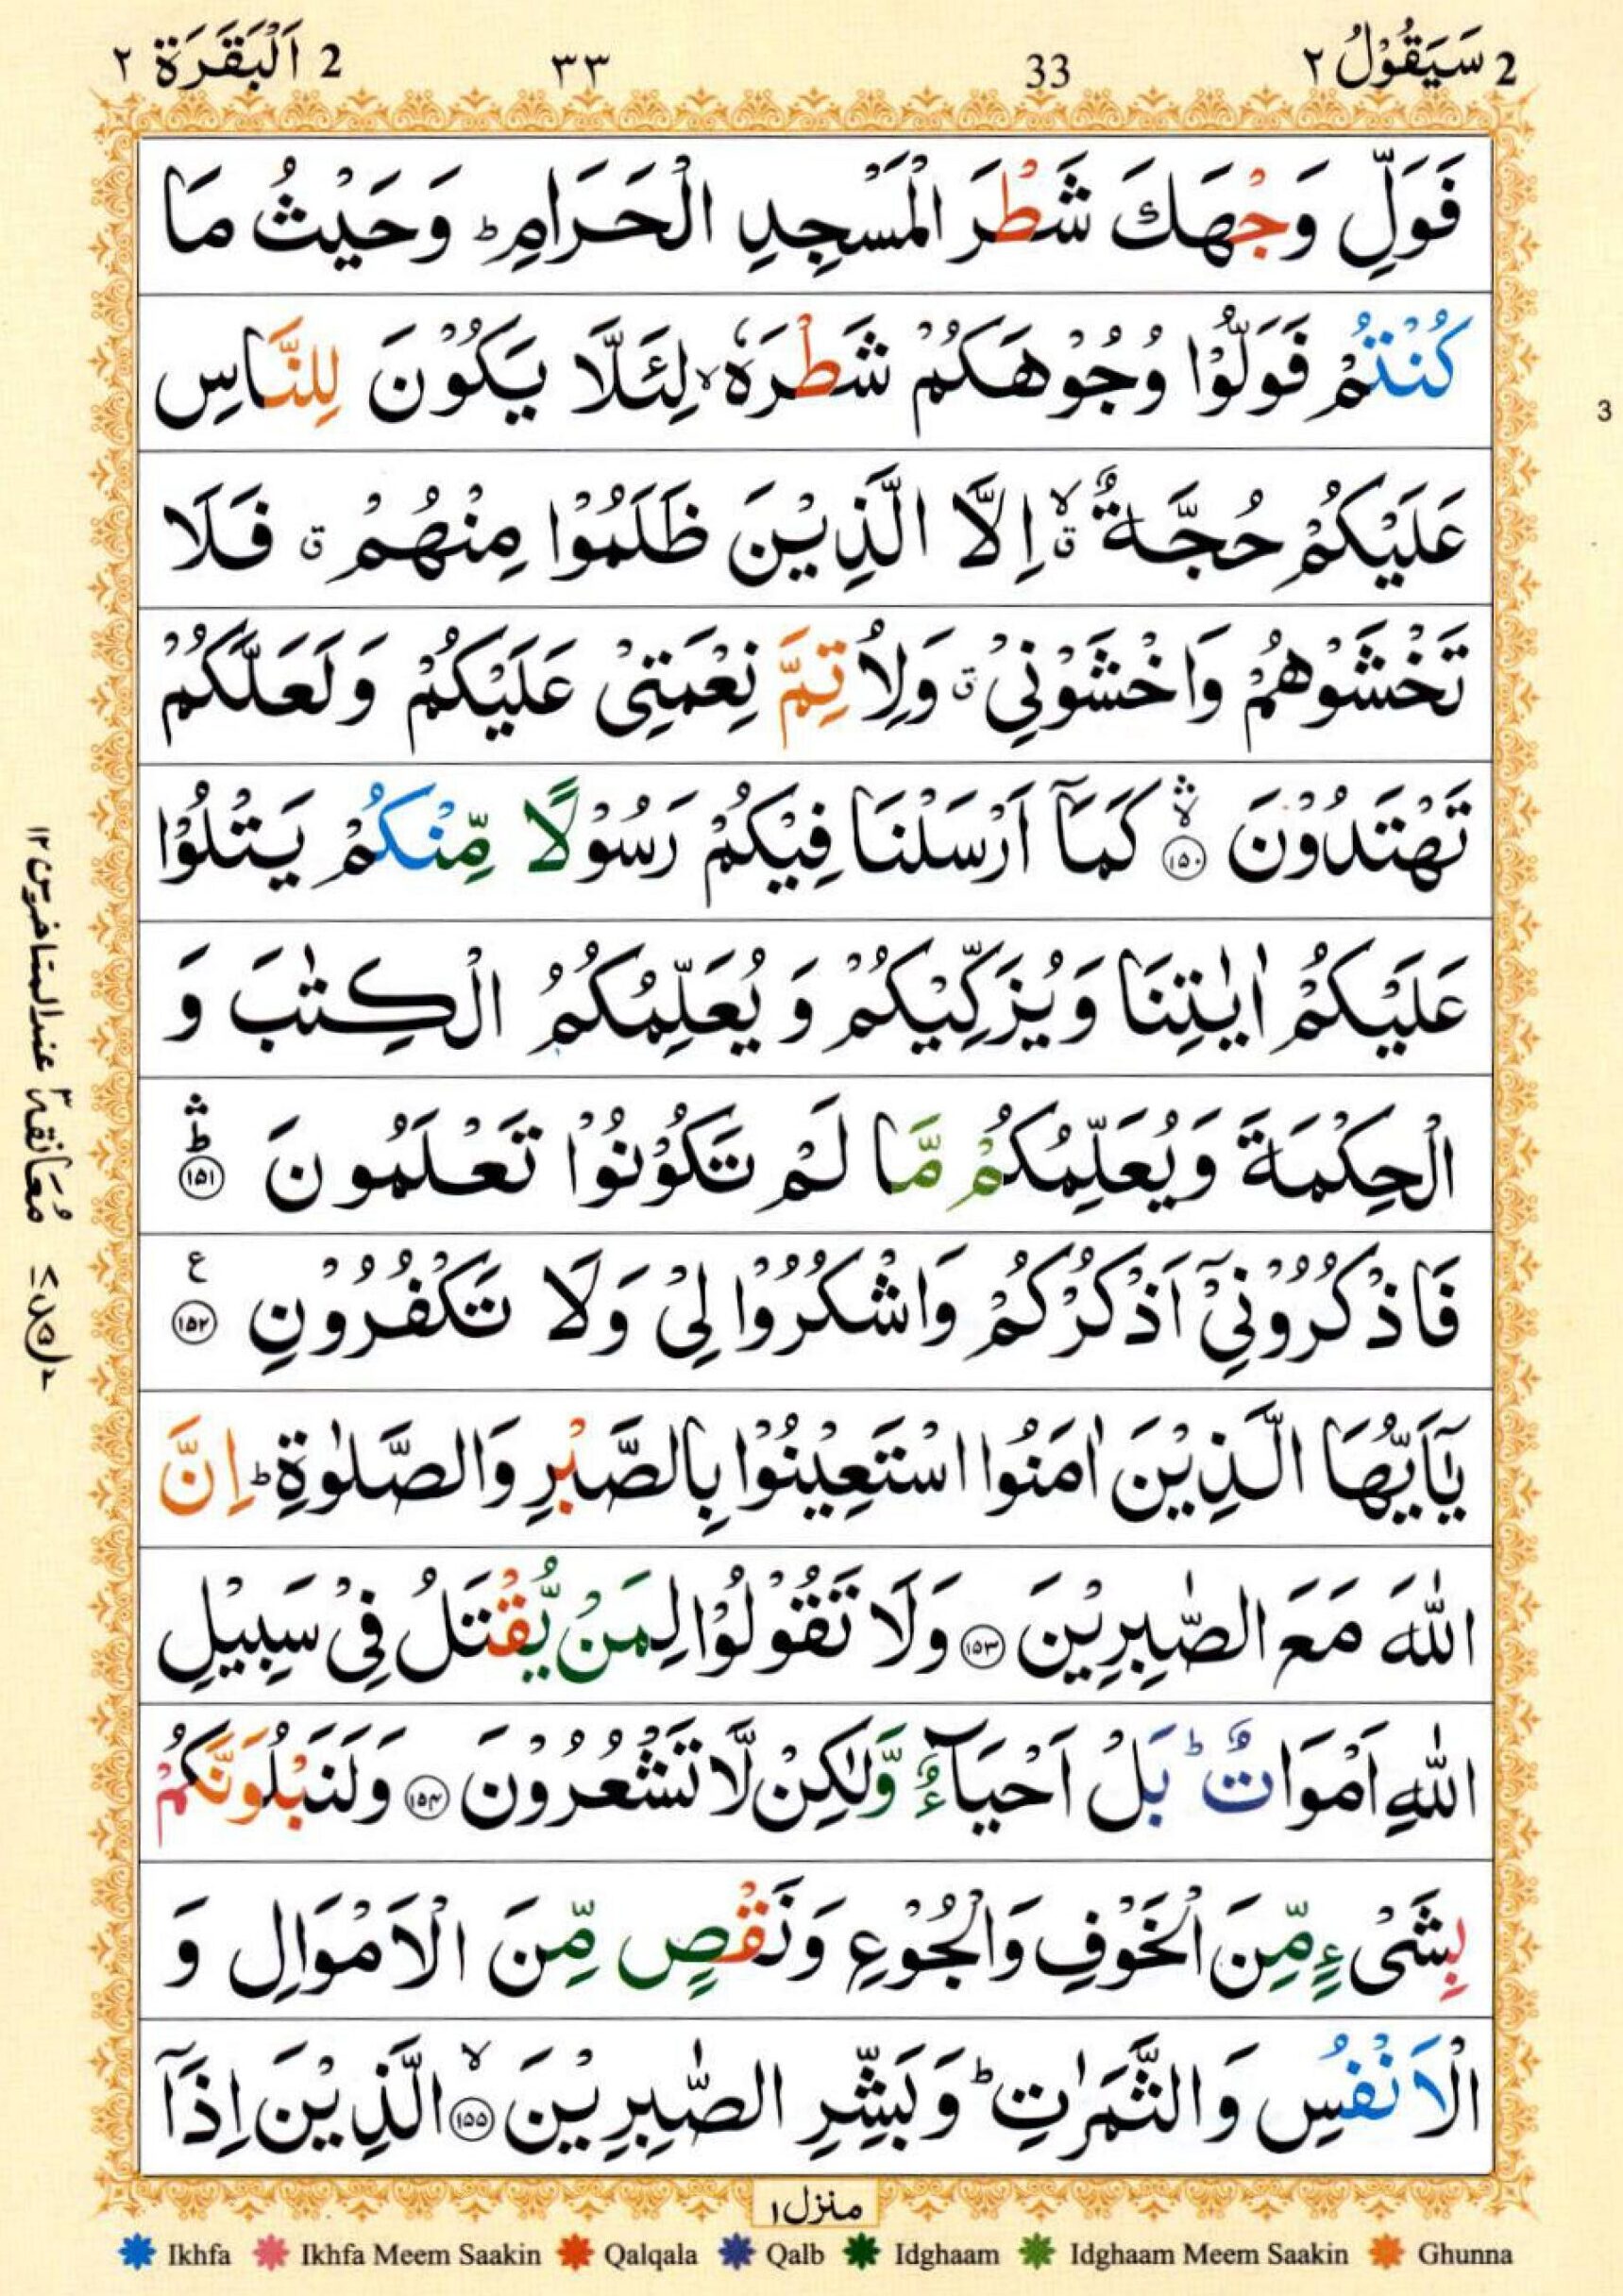 2 سَيَقُوْلُ ٢ 33 ٣٣ 2 اَلْبَقَرَة ٢
فَوَلِّ وَجْهَكَ شَطْرَ الْمَسْجِدِ الْحَرَامِ ؕ وَحَيْثُ مَا
كُنْتُمْ فَوَلُّوْا وُجُوْهَكُمْ شَطْرَهٗ ۙ لِئَلَّا يَكُوْنَ لِلنَّاسِ
عَلَيْكُمْ حُجَّةٌ ۙۗ اِلَّا الَّذِيْنَ ظَلَمُوْا مِنْهُمْ ۗ فَلَا
تَخْشَوْهُمْ وَاخْشَوْنِيْ ۗ وَلِاُتِمَّ نِعْمَتِيْ عَلَيْكُمْ وَلَعَلَّكُمْ
تَهْتَدُوْنَ ۙۛ ﴿١٥٠﴾ كَمَاۤ اَرْسَلْنَا فِيْكُمْ رَسُوْلًا مِّنْكُمْ يَتْلُوْا
عَلَيْكُمْ اٰيٰتِنَا وَيُزَكِّيْكُمْ وَيُعَلِّمُكُمُ الْكِتٰبَ وَ
الْحِكْمَةَ وَيُعَلِّمُكُمْ مَّا لَمْ تَكُوْنُوْا تَعْلَمُوْنَ ؕۛ ﴿١٥١﴾
فَاذْكُرُوْنِيْۤ اَذْكُرْكُمْ وَاشْكُرُوْا لِيْ وَلَا تَكْفُرُوْنِ ﴿١٥٢﴾ ع
يٰۤاَيُّهَا الَّذِيْنَ اٰمَنُوا اسْتَعِيْنُوْا بِالصَّبْرِ وَالصَّلٰوةِ ؕ اِنَّ
اللّٰهَ مَعَ الصّٰبِرِيْنَ ﴿١٥٣﴾ وَلَا تَقُوْلُوْا لِمَنْ يُّقْتَلُ فِيْ سَبِيْلِ
اللّٰهِ اَمْوَاتٌ ؕ بَلْ اَحْيَآءٌ وَّلٰكِنْ لَّا تَشْعُرُوْنَ ﴿١٥٤﴾ وَلَنَبْلُوَنَّكُمْ
بِشَيْءٍ مِّنَ الْخَوْفِ وَالْجُوْعِ وَنَقْصٍ مِّنَ الْاَمْوَالِ وَ
الْاَنْفُسِ وَالثَّمَرٰتِ ؕ وَبَشِّرِ الصّٰبِرِيْنَ ۙ ﴿١٥٥﴾ الَّذِيْنَ اِذَاۤ
3
مُعَانقة ٣ عند المتاخرين ١٢
منزل ١
Ikhfa Ikhfa Meem Saakin Qalqala Qalb Idghaam Idghaam Meem Saakin Ghunna